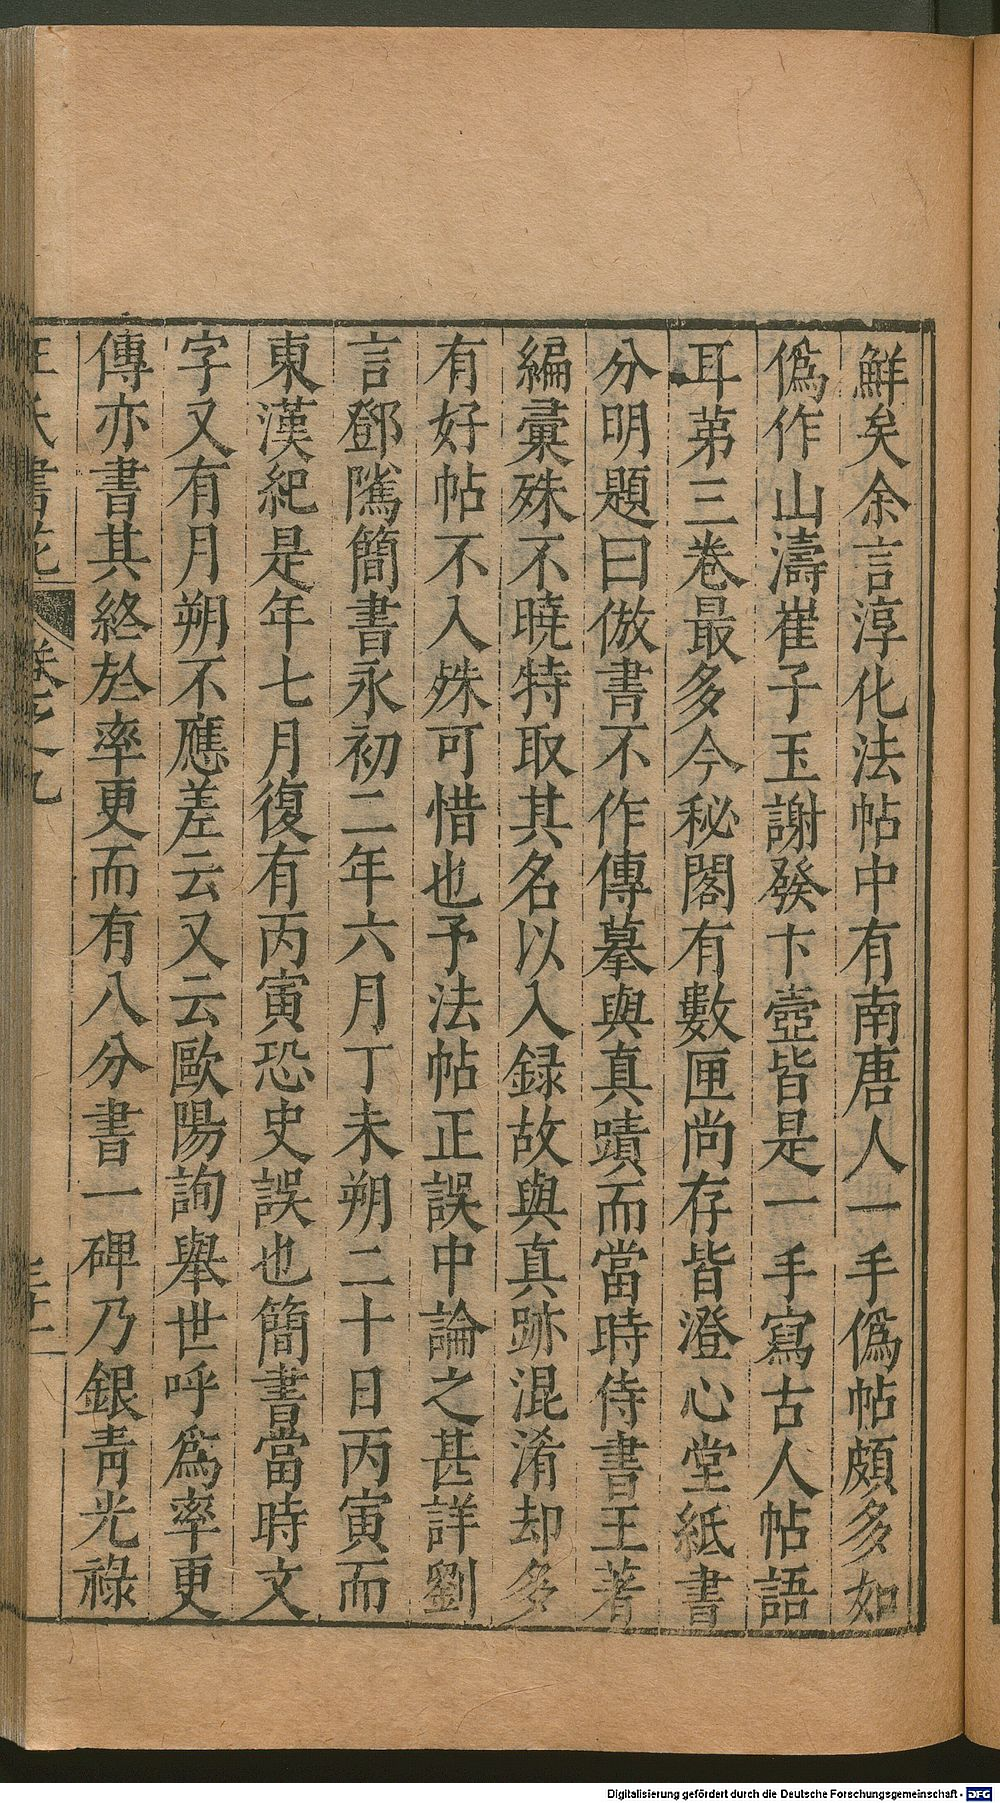 鮮矣余言淳化法帖中有南唐人一手僞帖頗多如
僞作山濤崔子玉謝發卞壺皆是一手寫古人帖語
耳第三卷最多今秘閣有數匣尚存皆澄心堂紙書
分明題曰倣書不作傳摹與真蹟而當時侍書王著
編彙殊不曉特取其名以入録故與真跡混淆却多
有好帖不入殊可惜也予法帖正誤中論之甚詳劉
言鄧隲簡書永初二年六月丁未朔二十日丙寅而
東漢紀是年七月復有丙寅恐史誤也簡書當時文
字又有月朔不應差云又云歐陽詢舉世呼爲率更
傳亦書其終於率更而有八分書一碑乃銀青光祿
氏書苑 卷之九
Digitalisierung gefördert durch die Deutsche Forschungsgemeinschaft - DFG